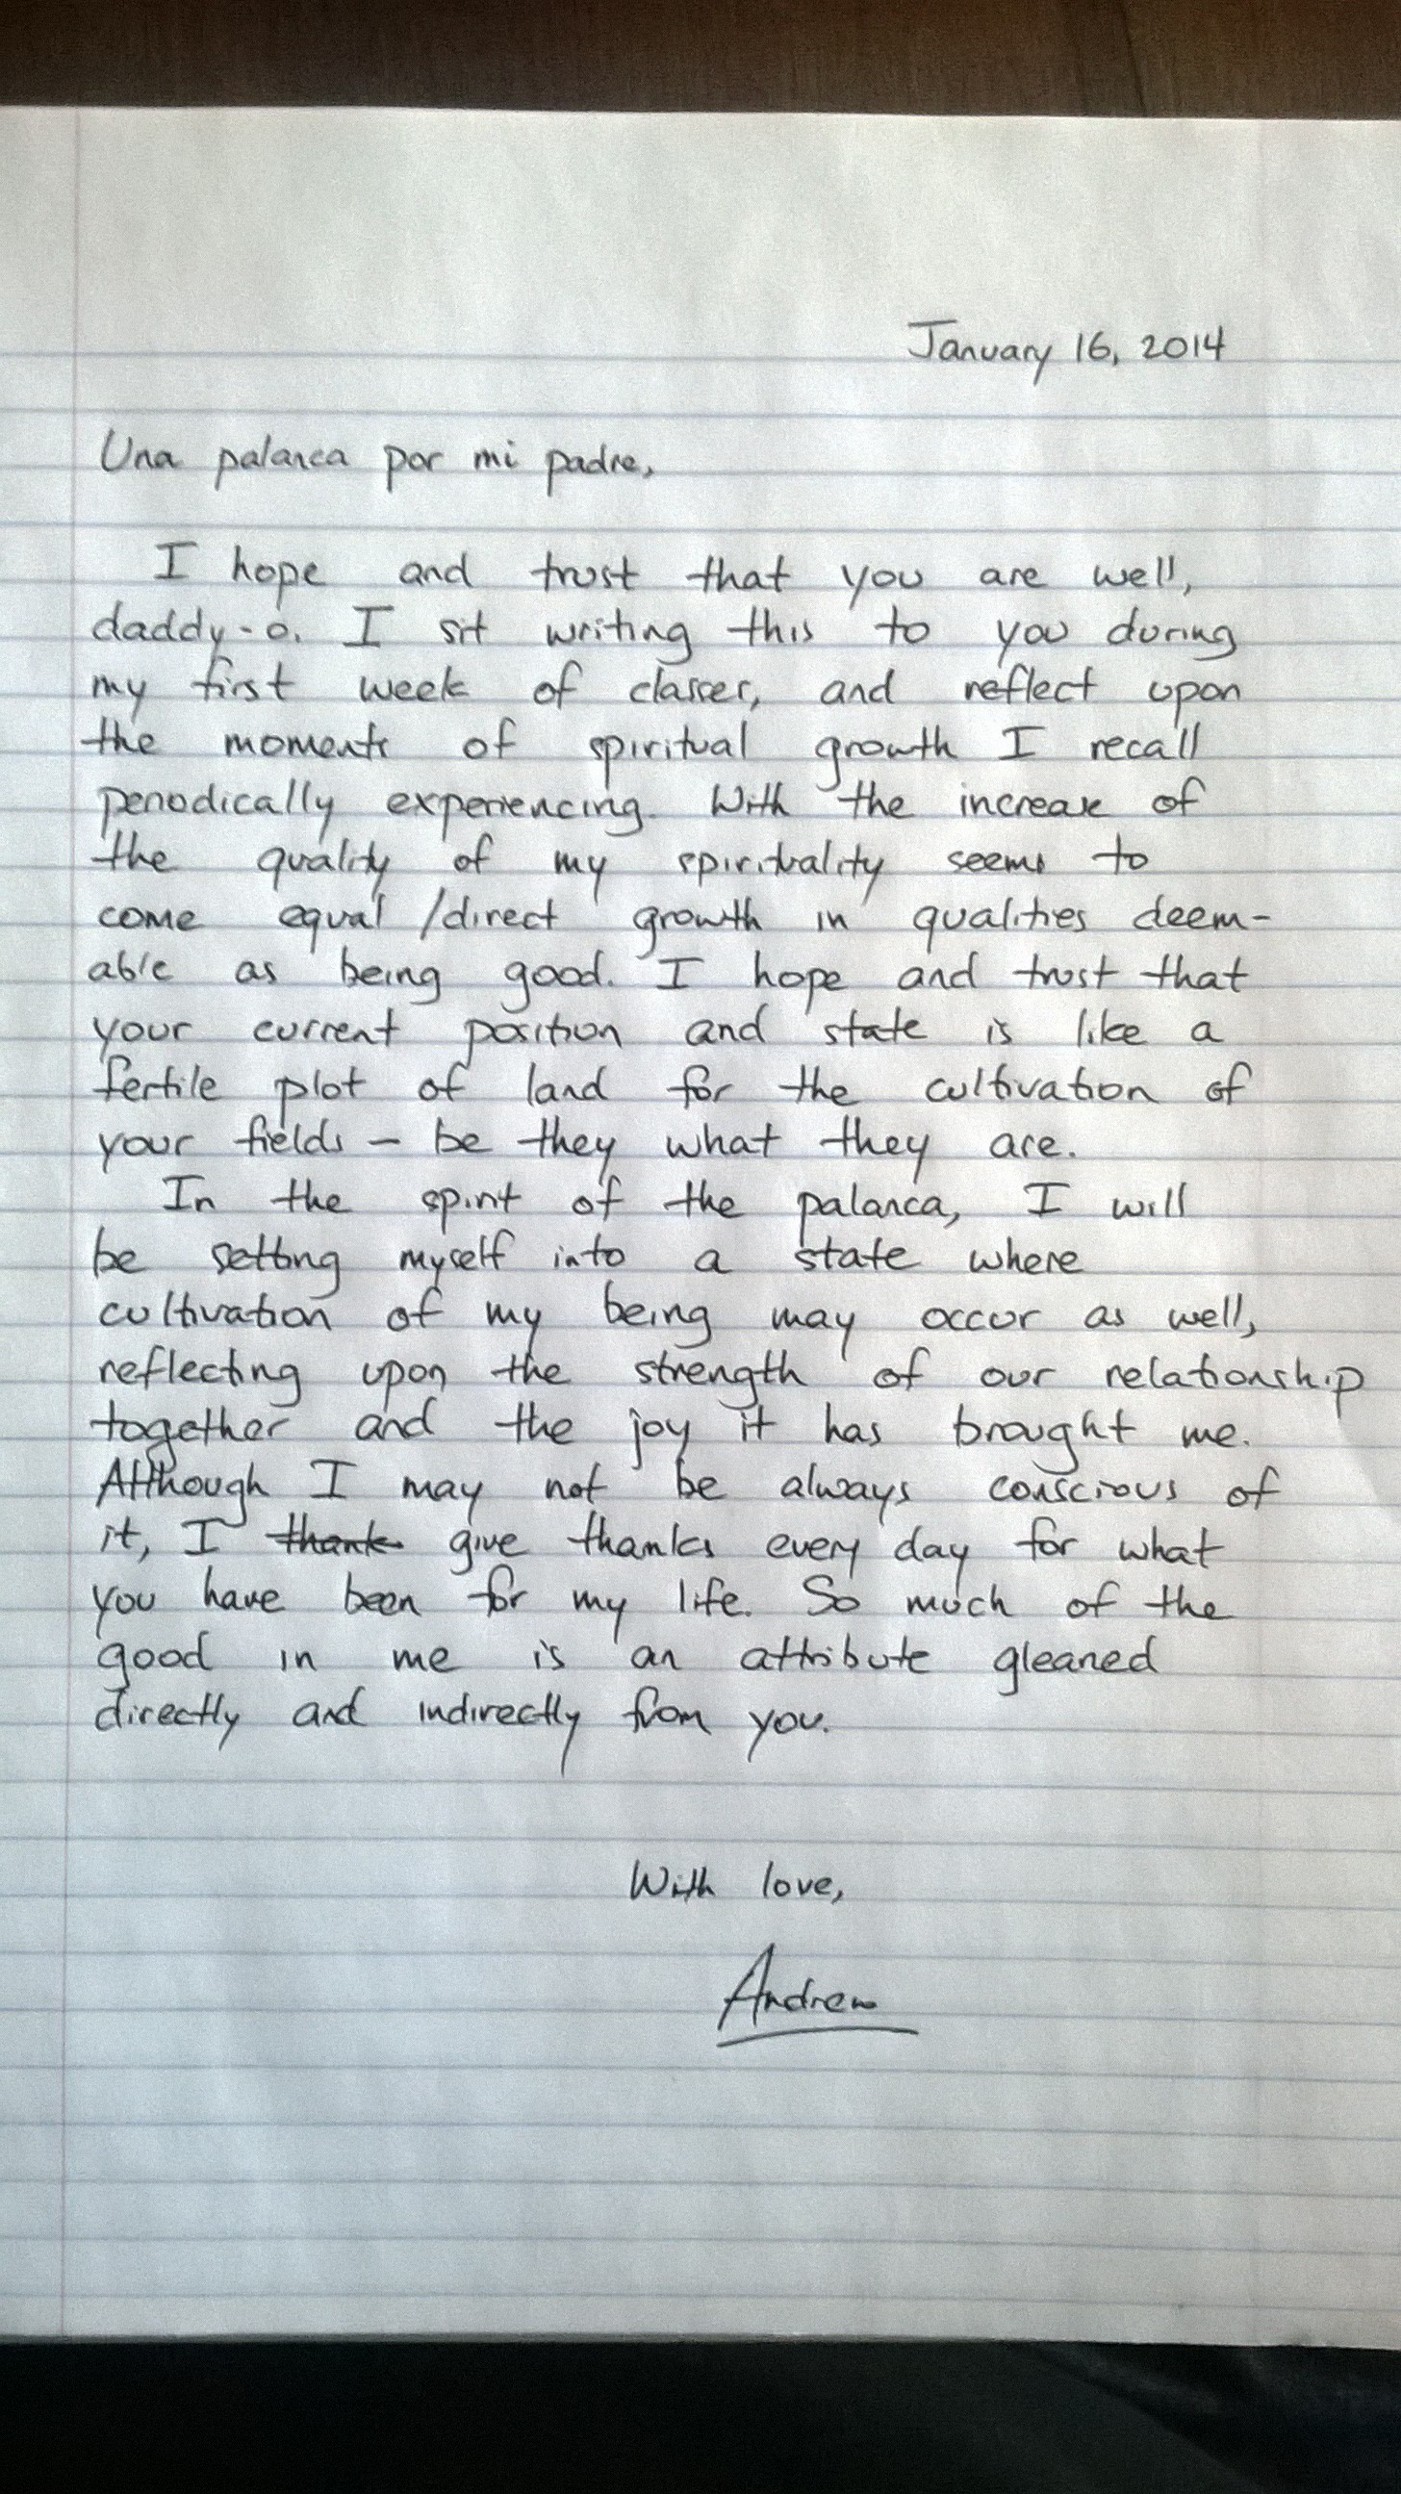 January 16, 2014
Una palanca por mi padre,
I hope and trust that you are well,
daddy-o. I sit writing this to you during
my first week of classes, and reflect upon
the moments of spiritual growth I recall
periodically experiencing. With the increase of
the quality of my spirituality seems to
come equal/direct growth in qualities deem-
able as being good. I hope and trust that
your current position and state is like a
fertile plot of land for the cultivation of
your fields - be they what they are.
In the spirit of the palanca, I will
be setting myself into a state where
cultivation of my being may occur as well,
reflecting upon the strength of our relationship
together and the joy it has brought me.
Although I may not be always conscious of
it, I thank give thanks every day for what
you have been for my life. So much of the
good in me is an attribute gleaned
directly and indirectly from you.
With love,
Andrew